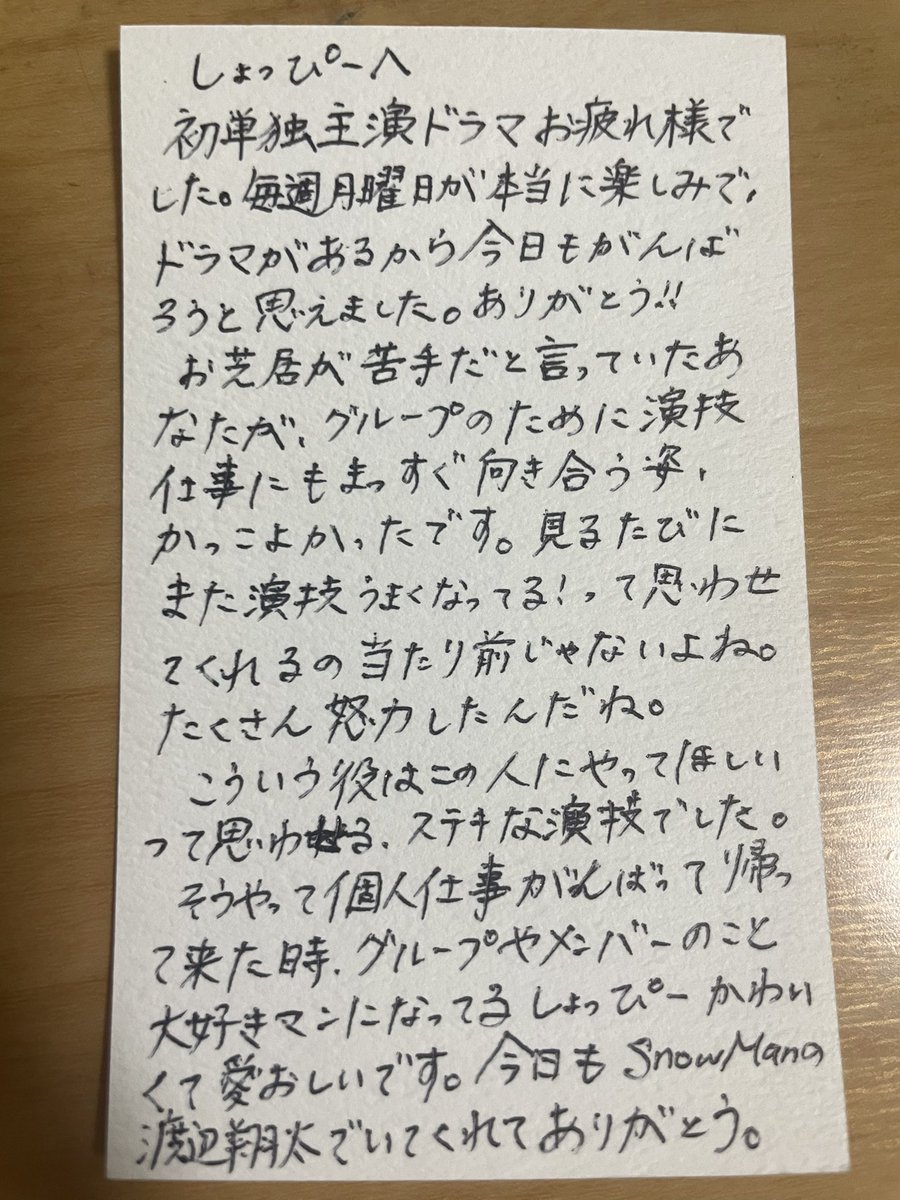 しょっぴーへ
初単独主演ドラマお疲れ様で
した。毎週月曜日が本当に楽しみで、
ドラマがあるから今日もがんば
ろうと思えました。ありがとう!!
お芝居が苦手だと言っていたあ
なたが、グループのために演技
仕事にもまっすぐ向き合う姿、
かっこよかったです。見るたびに
また演技うまくなってる!って思わせ
てくれるの当たり前じゃないよね。
たくさん努力したんだね。
こういう役はこの人にやってほしい
って思わせる、ステキな演技でした。
そうやって個人仕事がんばって帰っ
て来た時、グループやメンバーのこと
大好きマンになってるしょっぴーかわい
くて愛おしいです。今日もSnowManの
渡辺翔太でいてくれてありがとう。